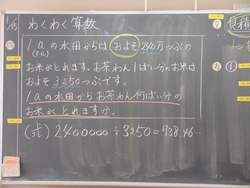 わくわく算数
1aの水田からは およそ240万つぶの
お米がとれます。お茶わん1ぱい分のお米は
およそ3250つぶです。
1aの水田からお茶わん何ばい分の
お米がとれますか。
(式) 2400000÷3250=738.46…